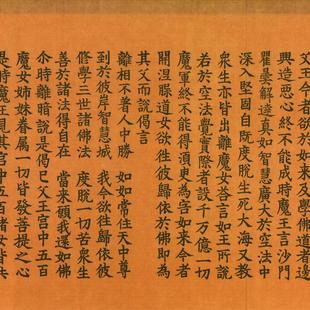 父王今者欲於如來及學佛道者邊
興造惡心終不能成時魔王言沙門
瞿曇解達真如智慧廣大於空法中
深入堅固自既度脫生死大海又教
眾生亦皆出離魔女荅言如王所說
若於空法覺實際者設千万億一切
魔軍終不能得須臾為害如來今者
開涅槃道女欲往彼歸依於佛即為
其父而說偈言
離相不普人中勝 如如常住天中尊
到於彼岸智慧城 我今欲往歸依彼
修學三世諸佛法 度脫一切苦眾生
善於諸法得自在 當來願我還如佛
尒時離暗說是偈已父王宮中五百
魔女姉妹眷屬一切皆發菩提之心
是時魔王見其宮中五百諸女皆共